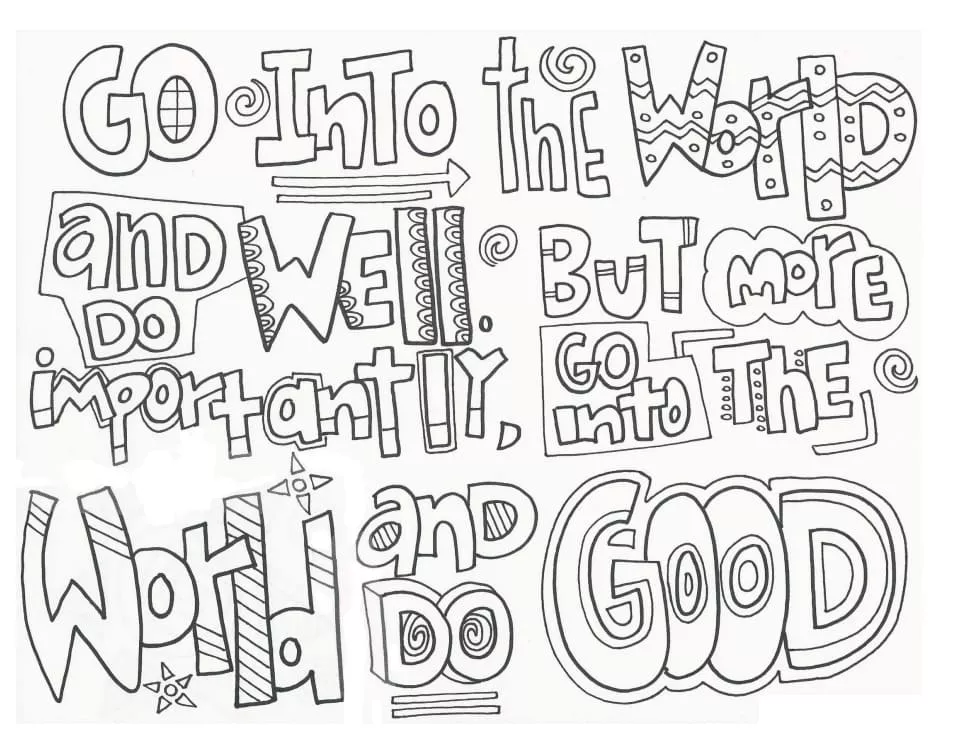 GO InTo thE WorlD
anD DO WEll. BuT morE
importantlY, GO into ThE
World anD DO GOOD